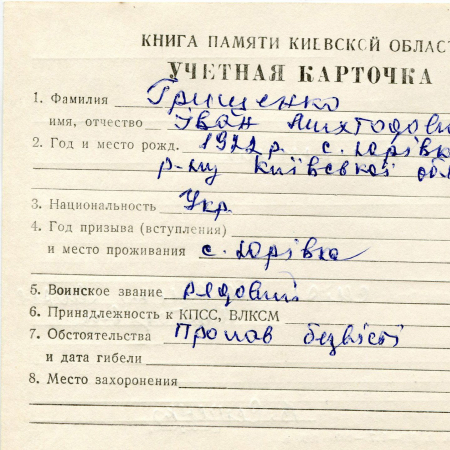 КНИГА ПАМЯТИ КИЕВСКОЙ ОБЛАСТ
УЧЕТНАЯ КАРТОЧКА
1. Фамилия Грищенко
имя, отчество Іван
2. Год и место рожд. 1922 р. с. Юрівка
р-ну Київської обл
3. Национальность Укр.
4. Год призыва (вступления)
и место проживания с. Юрівка
5. Воинское звание рядовий
6. Принадлежность к КПСС, ВЛКСМ
7. Обстоятельства Пропав безвісті
и дата гибели
8. Место захоронения